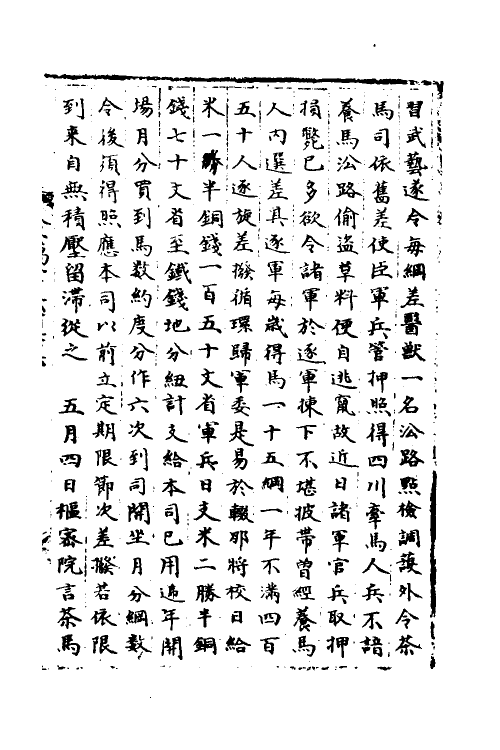 習武藝遂令每綱差醫獸一名沿路㸃檢調護外令茶
馬司依舊差使臣軍兵管押照得四川牽馬人兵不諳
養馬沿路偷盗草料便自逃竄故近日諸軍官兵取押
損斃已多欲令諸軍於逐軍揀下不堪披帶曽經養馬
人内選差其逐軍每歲得馬一十五綱一年不滿四百
五十人逐旋差撥循環歸軍委是易於輟那將校日給
米一勝半銅錢一百五十文省軍兵日支米二勝半銅
錢七十文省至鐵錢地分紐計支給本司已用逓年開
場月分買到馬數約度分作六次到司開坐月分綱數
今後須得照應本司以前立定期限節次差撥若依限
到來自無積壓留滯從之　五月四日樞宻院言茶馬